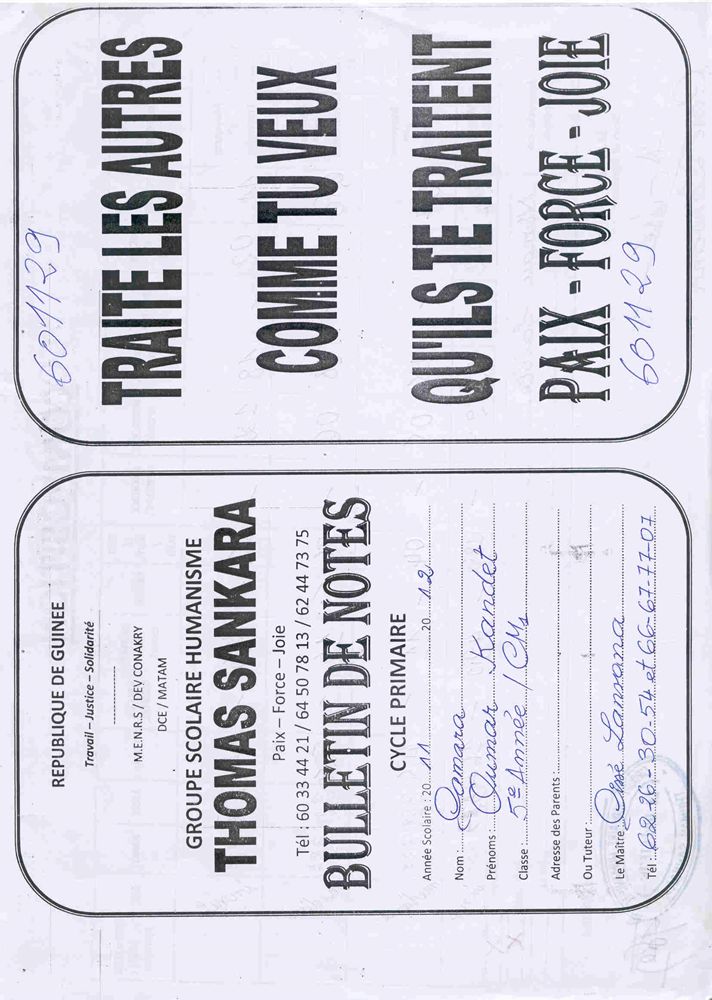 601129
TRAITE LES AUTRES
COMME TU VEUX
QU'ILS TE TRAITENT
PAIX - FORCE - JOIE
601129
REPUBLIQUE DE GUINEE
Travail – Justice – Solidarité
M.E.N.R.S / DEV CONAKRY
DCE / MATAM
GROUPE SCOLAIRE HUMANISME
THOMAS SANKARA
Paix – Force – Joie
Tél : 60 33 44 21 / 64 50 78 13 / 62 44 73 75
BULLETIN DE NOTES
CYCLE PRIMAIRE
Année Scolaire : 20 11 20 12
Nom : Camara
Prénoms : Oumar Kandet
Classe : 5e Année / CM1
Adresse des Parents :
Ou Tuteur :
Le Maître : Lansana
Tél : 62-26-30-54 et 66-67-77-07